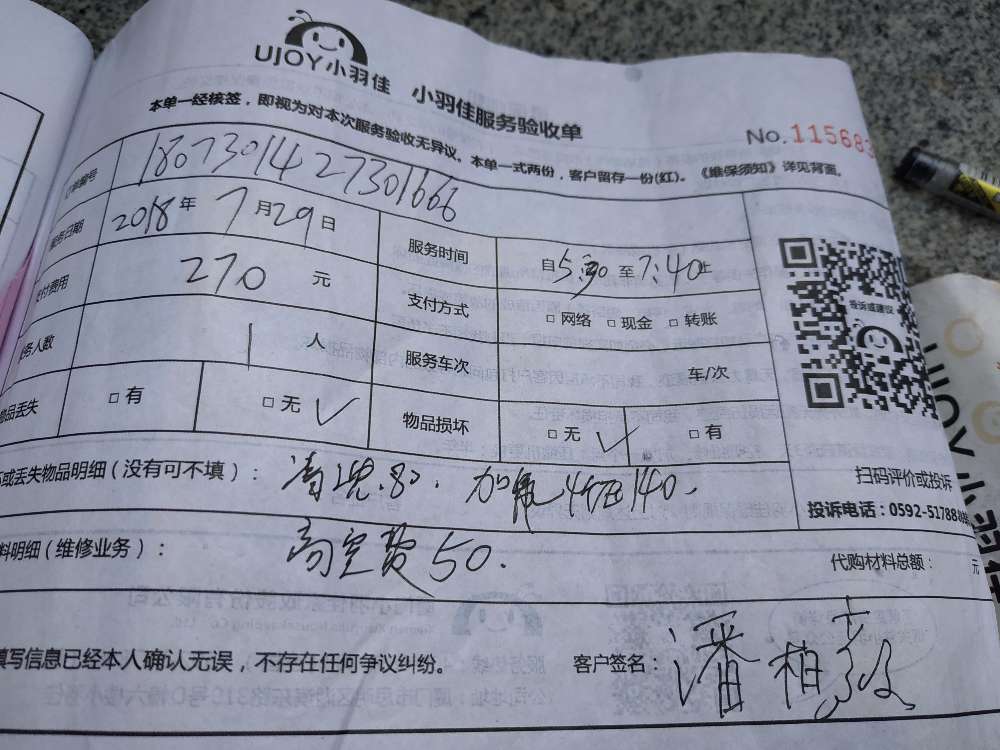 UJOY小羽佳 小羽佳服务验收单
本单一经核签，即视为对本次服务验收无异议。本单一式两份，客户留存一份(红)。《维保须知》详见背面。
No.115683
订单编号 1807301427301666
服务日期 2018年7月29日 服务时间 自5:30至7:40止
支付费用 270元 支付方式 □网络 □现金 □转账
服务人数 1人 服务车次 车/次
物品丢失 □有 □无 ✓ 物品损坏 □无 ✓ □有
投诉或建议
坏或丢失物品明细（没有可不填）： 清洗.80. 加氟4 140.
扫码评价或投诉
投诉电话：0592-51788
料明细（维修业务）： 高空费50.
代购材料总额： 元
填写信息已经本人确认无误，不存在任何争议纠纷。 客户签名：潘柏
UJOY 小羽佳